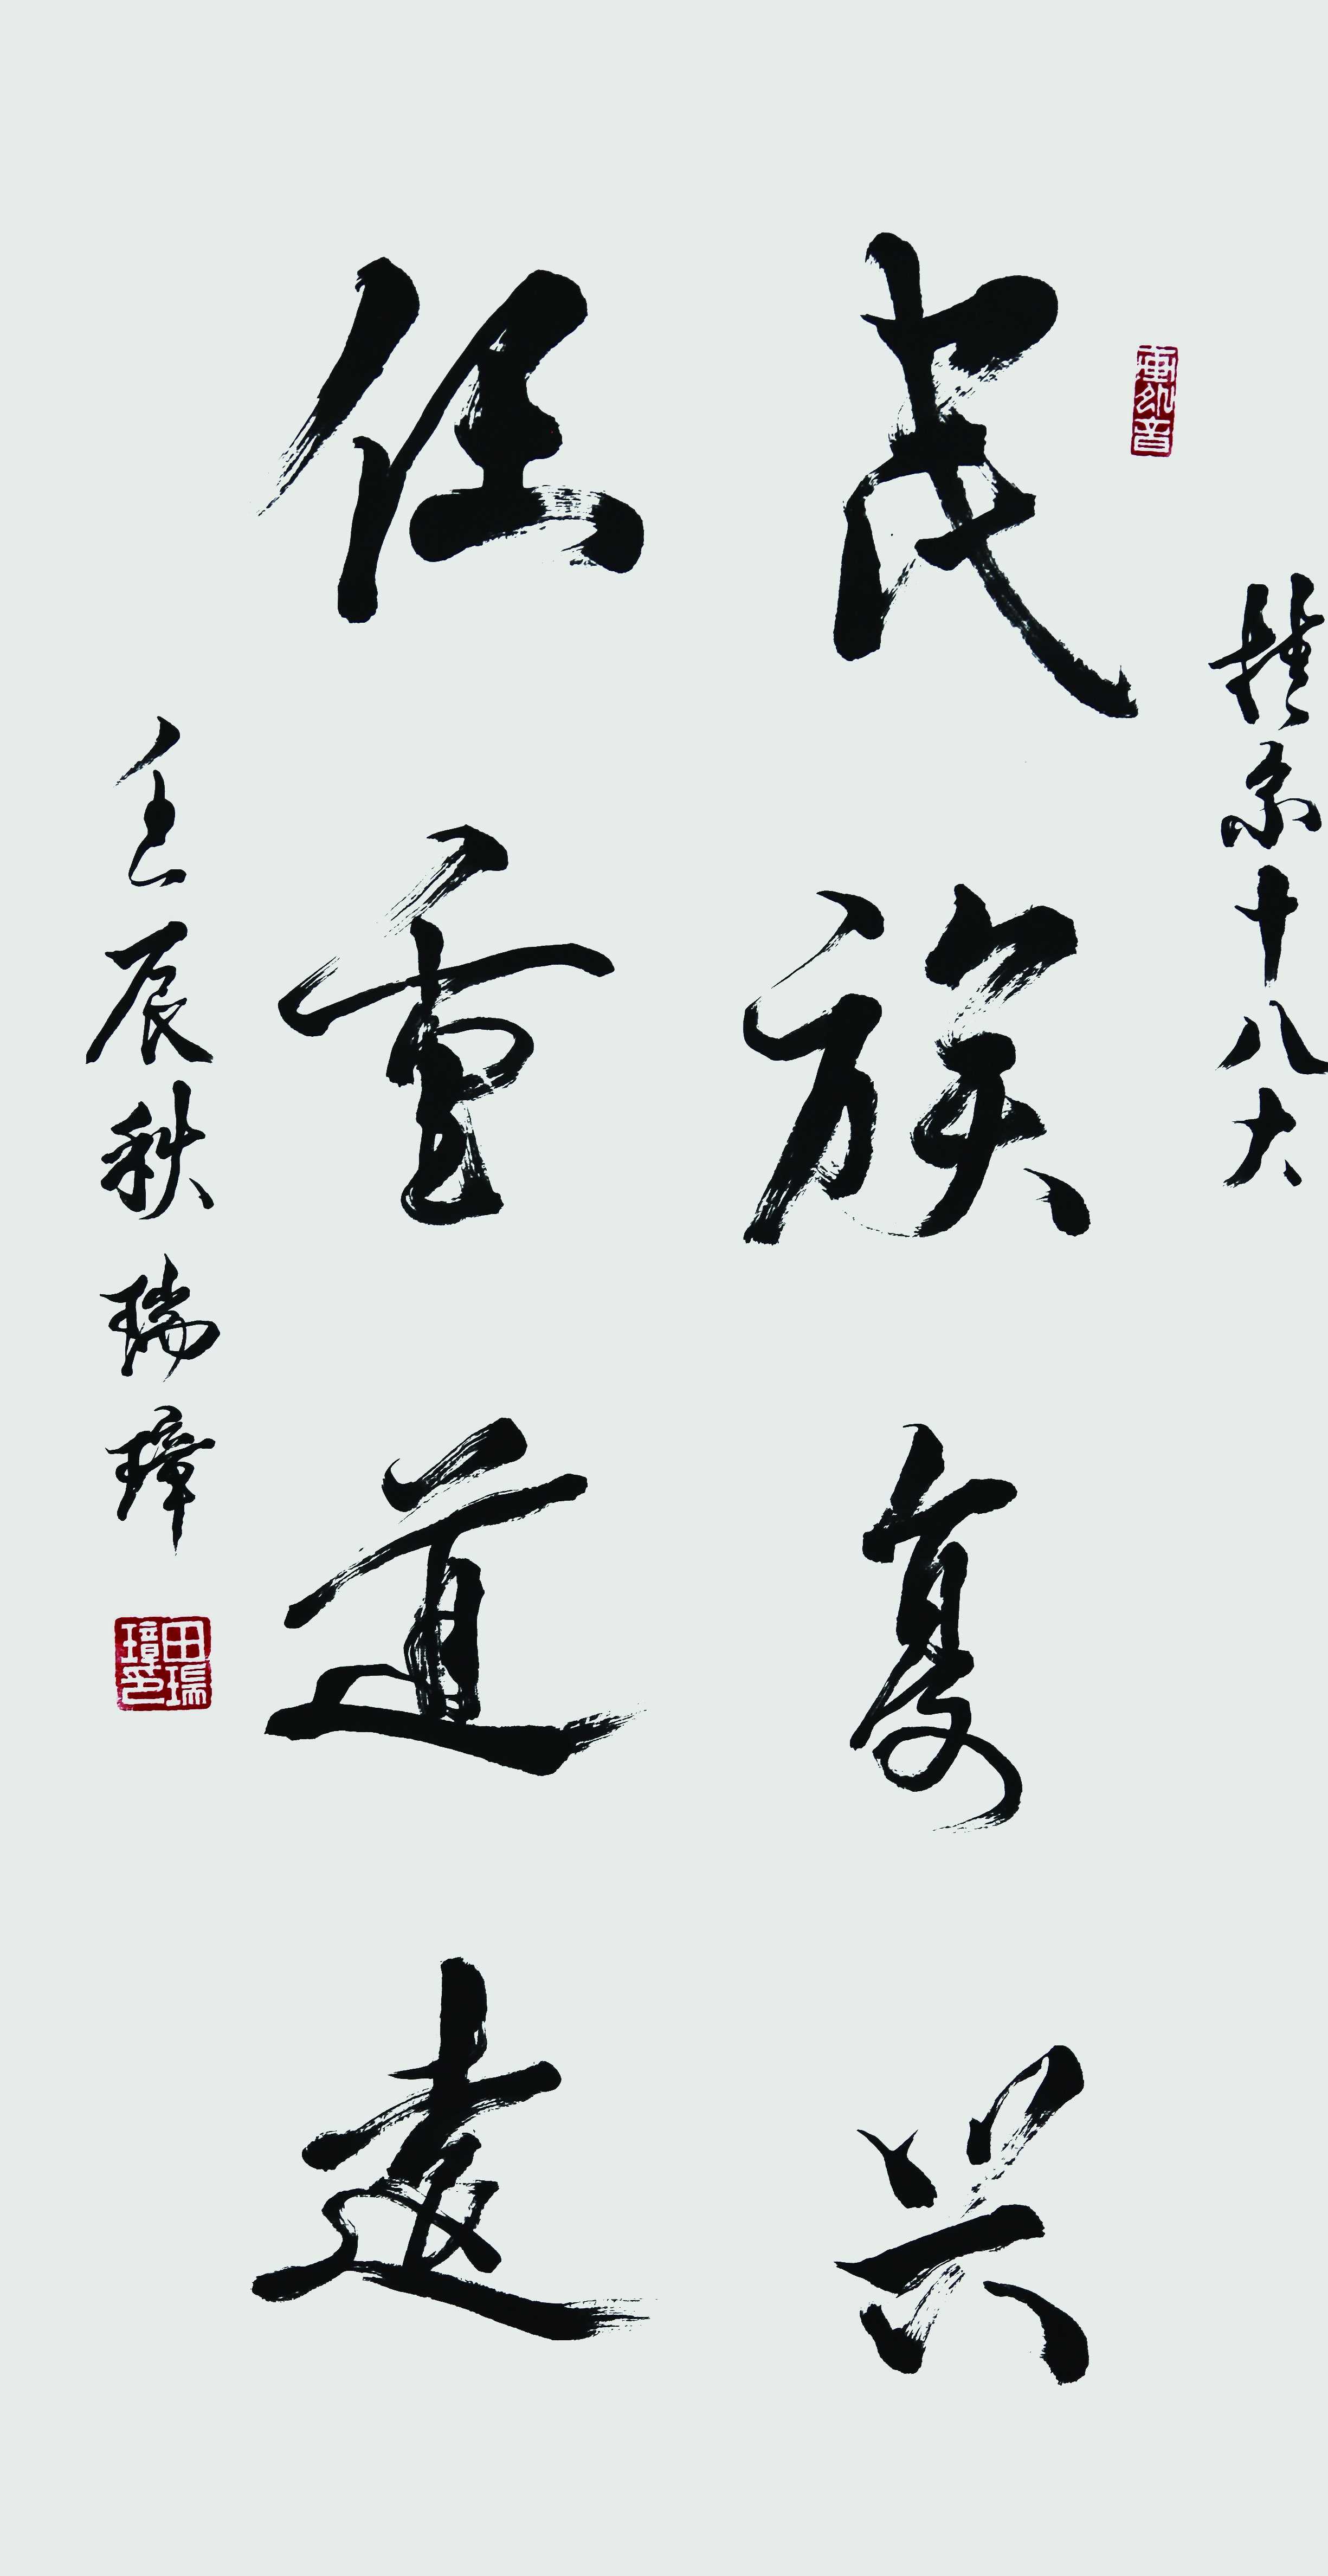 十八大
民族复兴
任重道遠
壬辰秋瑞璋
田瑞璋印